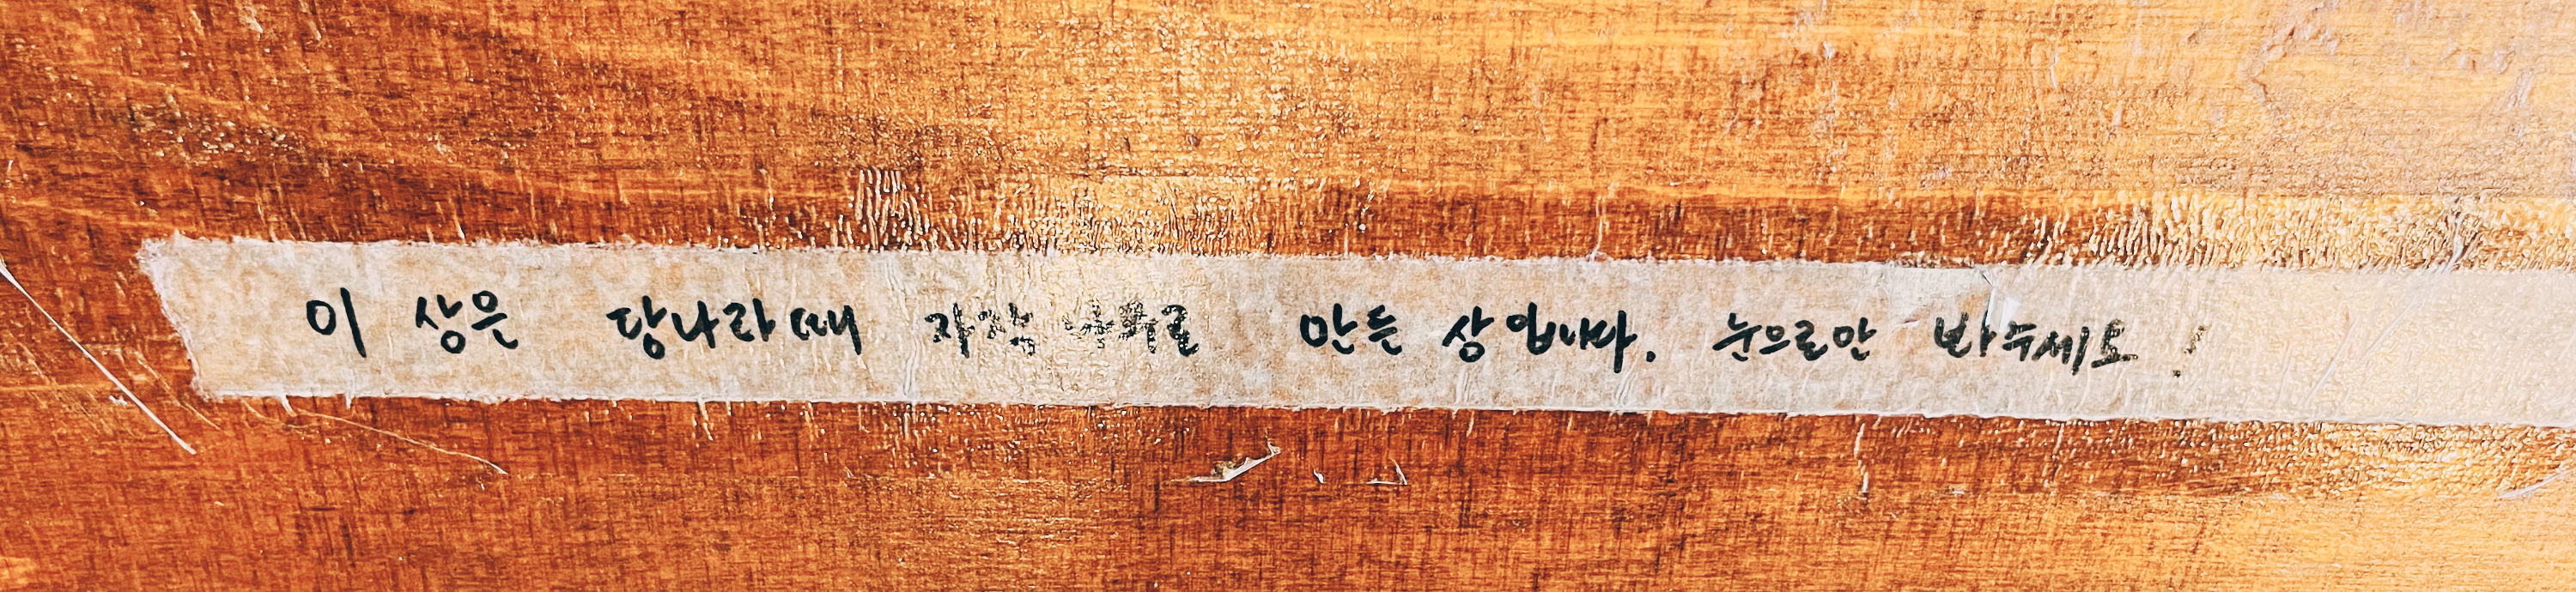 이 상은 당나라때 자작나무로 만든 상입니다. 눈으로만 봐주세요!